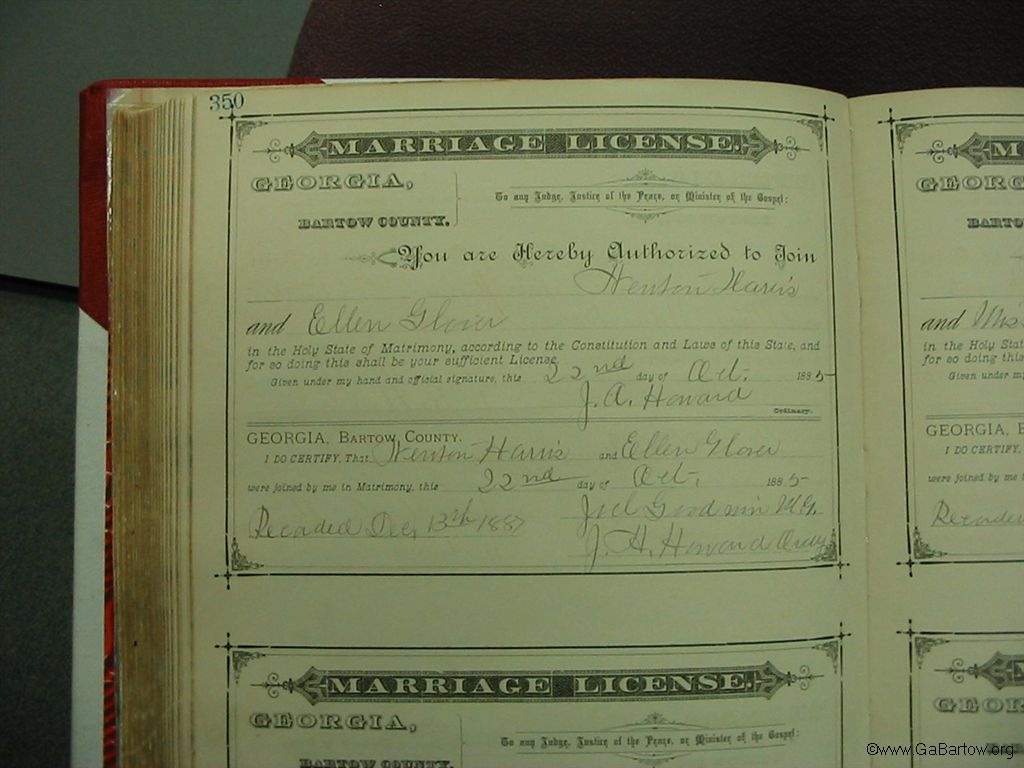 350
MARRIAGE LICENSE.
GEORGIA,
BARTOW COUNTY.
To any Judge, Justice of the Peace, or Minister of the Gospel:
You are Hereby Authorized to Join
Henton Harris
and Ellen Glover
in the Holy State of Matrimony, according to the Constitution and Laws of this State, and
for so doing this shall be your sufficient License.
Given under my hand and official signature, this 22nd day of Oct. 1885
J. A. Howard
Ordinary.
GEORGIA, BARTOW COUNTY.
I DO CERTIFY, That Henton Harris and Ellen Glover
were joined by me in Matrimony, this 22nd day of Oct. 1885
Joel Goodwin M.G.
Recorded Dec, 13th 1887
J. H. Howard Ordy
MARRIAGE LICENSE.
GEORGIA,
BARTOW COUNTY.
To any Judge, Justice of the Peace, or Minister of the Gospel:
M
GEORG
BARTO
and Miss
in the Holy Stat
for so doing this
Given under my
GEORGIA, B
I DO CERTIFY
were joined by m
Recorded
M
GEORG
©www.GaBartow.org